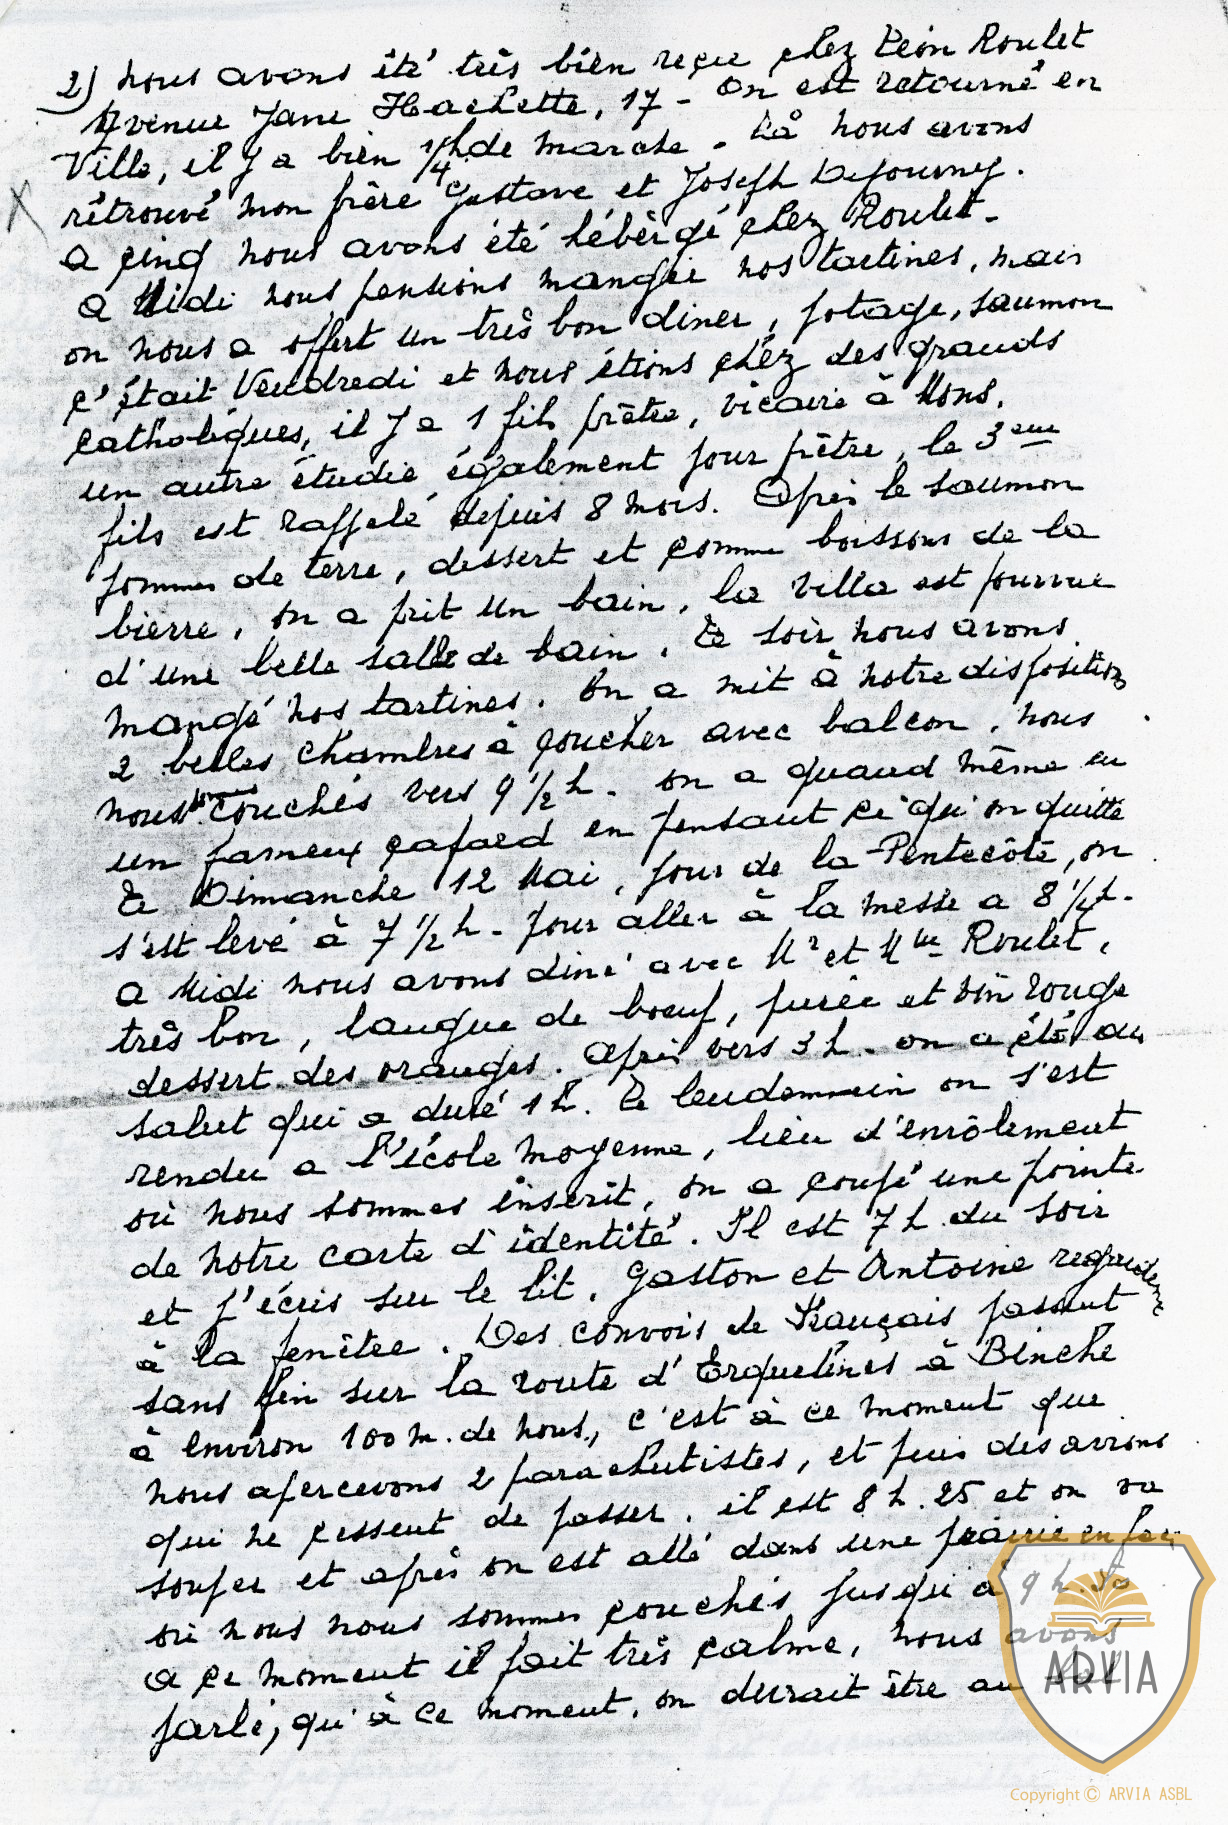 2) nous avons été très bien reçu chez Léon Roulet
Avenue Jane Hachette, 17 - On est retourné en
Ville, il y a bien 1/4 h de marche. Là nous avons
rêtrouvé mon frère Gustave et Joseph Dejourney.
X
A çinq nous avons été hébèrgé chez Roulet.
A Midi nous pensions mangée nos tartines, mais
on nous a offert un très bon diner, potage, saumon
ç'était Vendredi et nous étions chéz des grands
catholiques, il y a 1 fils prêtre, vicaire à Mons,
un autre étudie également pour prêtre, le 3eme
fils est rappelé depuis 8 mois. Après le saumon
pommes de terre, dessert et comme boissons de la
bierre, on a prit un bain, la villa est pourvue
d'une belle salle de bain. Le soir nous avons
mangé nos tartines. On a mit à notre disposition
2 belles chambres à çoucher avec balcon. Nous
nous sommes couchés vers 9 1/2 h. on a quand même eu
un fameux çafard en pensant ce qu'on quitte
Le Dimanche 12 Mai, jour de la Pentecôte, on
s'est levé à 7 1/2 h - pour aller à la messe a 8 1/4 h.
A Midi nous avons diné avec Mr et Mme Roulet,
très bon, langue de boeuf, purée et vin rouge
dessert des oranges. Après vers 3 h. on a été au
salut qui a duré 1 h. Le lendemain on s'est
rendu a l'école moyenne, lieu d'enrôlement
où nous sommes inscrit, on a çoupé une pointe
de notre carte d'identité. Il est 7 h du soir
et j'écris sur le lit. Gaston et Antoine regardent
à la fenêtre. Des convois de Français passent
sans fin sur la route d'Erquelines à Binche
à environ 100 m. de nous, c'est à ce moment que
nous apercevons 2 parachutistes, et puis des avions
qui ne çessent de passer. il est 8 h. 25 et on va
souper et après on est allé dans une prairie en face
où nous nous sommes çouchés jusqu'à 9 h. 30
A çe moment il fait très çalme, nous avons
parlé, qu'à ce moment, on devrait être au bal
ARVIA
Copyright © ARVIA ASBL